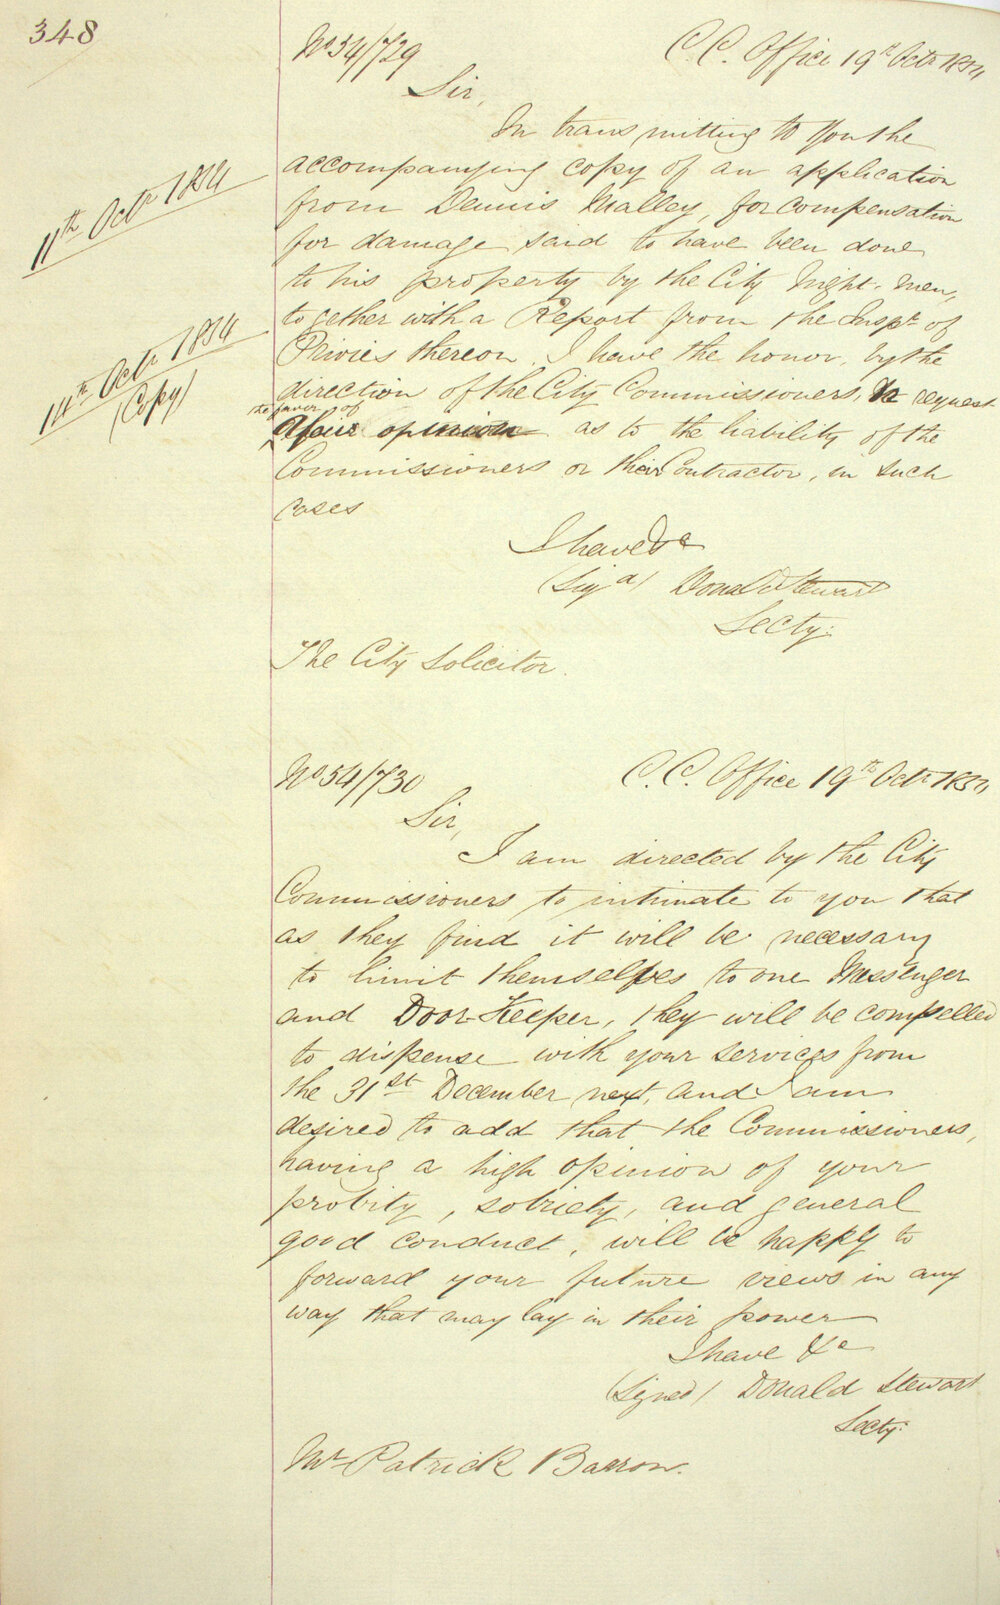 348
No 54/729 C. C. Office 19th Octr 1854
Sir,
In transmitting to you the
accompanying copy of an application
11th Octr 1854
from Dennis Malley, for compensation
for damage said to have been done
to his property by the City Night-men,
together with a Report from the Inspr of
14th Octr 1854
(Copy)
Privies thereon. I have the honor, by the
direction of the City Commissioners, to request
the favor of
opinion as to the liability of the
Commissioners or their Contractor, in such
cases
I have &c
(Sigd) Donald Stewart
Secty.
The City Solicitor.
No 54/730 C. C. Office 19th Octr 1854
Sir,
I am directed by the City
Commissioners to intimate to you that
as they find it will be necessary
to limit themselves to one Messenger
and Door-Keeper, they will be compelled
to dispense with your services from
the 31st December next, and I am
desired to add that the Commissioners,
having a high opinion of your
probity, sobriety, and general
good conduct, will be happy to
forward your future views in any
way that may lay in their power
I have &c
(Signed) Donald Stewart
Secty.
Mr Patrick Barron.